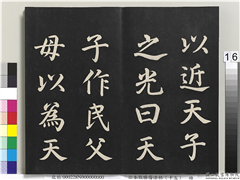 以近天子
之光曰天
子作民父
母以為天
16